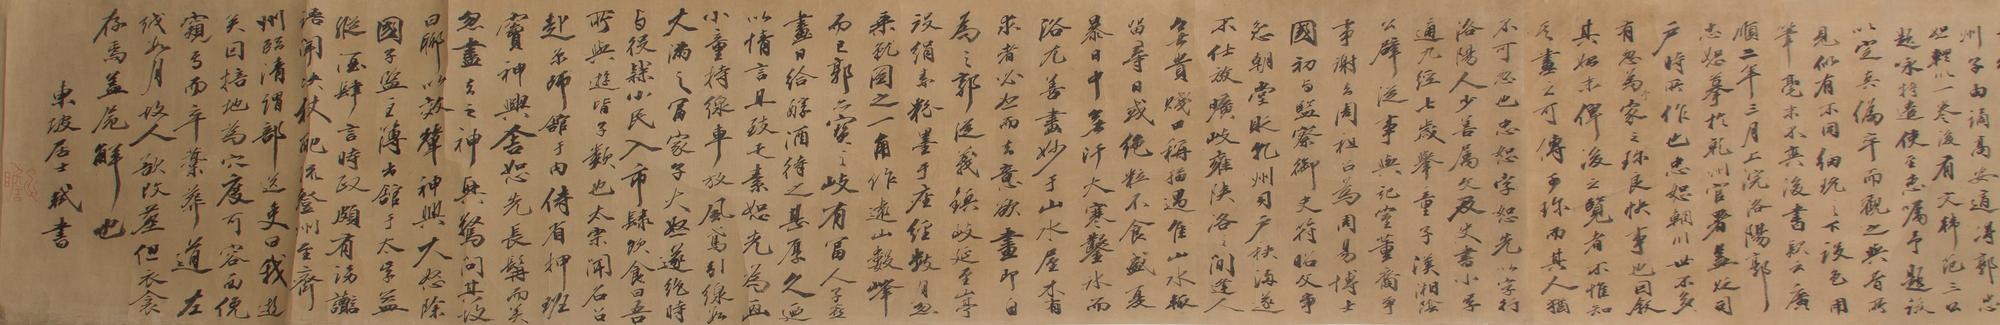 州子由謫高安道得郭忠
恕輞川一卷後有文
題咏特遣使至惠屬予題
以定真偽辛而觀之與昔所
見似有不同細玩之下設色用
筆毫末不真後書款云廣
順二年三月上浣洛陽郭
忠恕摹於乾州官署蓋貶司
戶時所作也忠恕輞川世不多
有忽為家之珍良快事也因敘
其始末俾後之覽者不惟知
是畫之可傳可珍而其人猶
不可忽也忠恕字恕先以字行
洛陽人少善屬文及史書小學
通九經七歲舉童子漢湘陰
公辟從事與記室董裔爭
事謝去周祖召為周易博士
國初與監察御史符昭文爭
忿朝堂貶乾州司戶秩滿遂
不仕放曠岐雍陝洛之間逢人
無貴賤口稱猫遇佳山水輒
留旬日或絕粒不食盛夏
暴日中無汗大寒鑿冰而
浴尤善畫妙于山水屋木有
求者必怒而去意欲畫即自
為之郭從義鎮岐延至亭
設絹素粉墨于座經數月忽
乘興圖之一角作遠山數峰
而已郭亦寶之岐有富人子喜
畫日給醇酒待之甚厚久迺
以情言且致匹素恕先為畫
小童持線車放風鳶引線數
丈滿之富家子大怒遂絕時
與役隸小民入市肆飲食曰吾
所與遊皆子類也太宗聞名召
赴京師館于內侍省押班
竇神興舍恕先長髯而美
忽盡去之神興驚問其故
曰聊以效顰神興大怒除
國子監主簿出館于太學益
縱酒肆言時政頗有謗讟
語聞決杖配流登州至齊
州臨清謂部送吏曰我逝
矣因掊地為穴度可容面俛
窺焉而卒藁葬道左
後數月故人欲改葬但衣衾
存焉蓋尸解也
東坡居士軾書